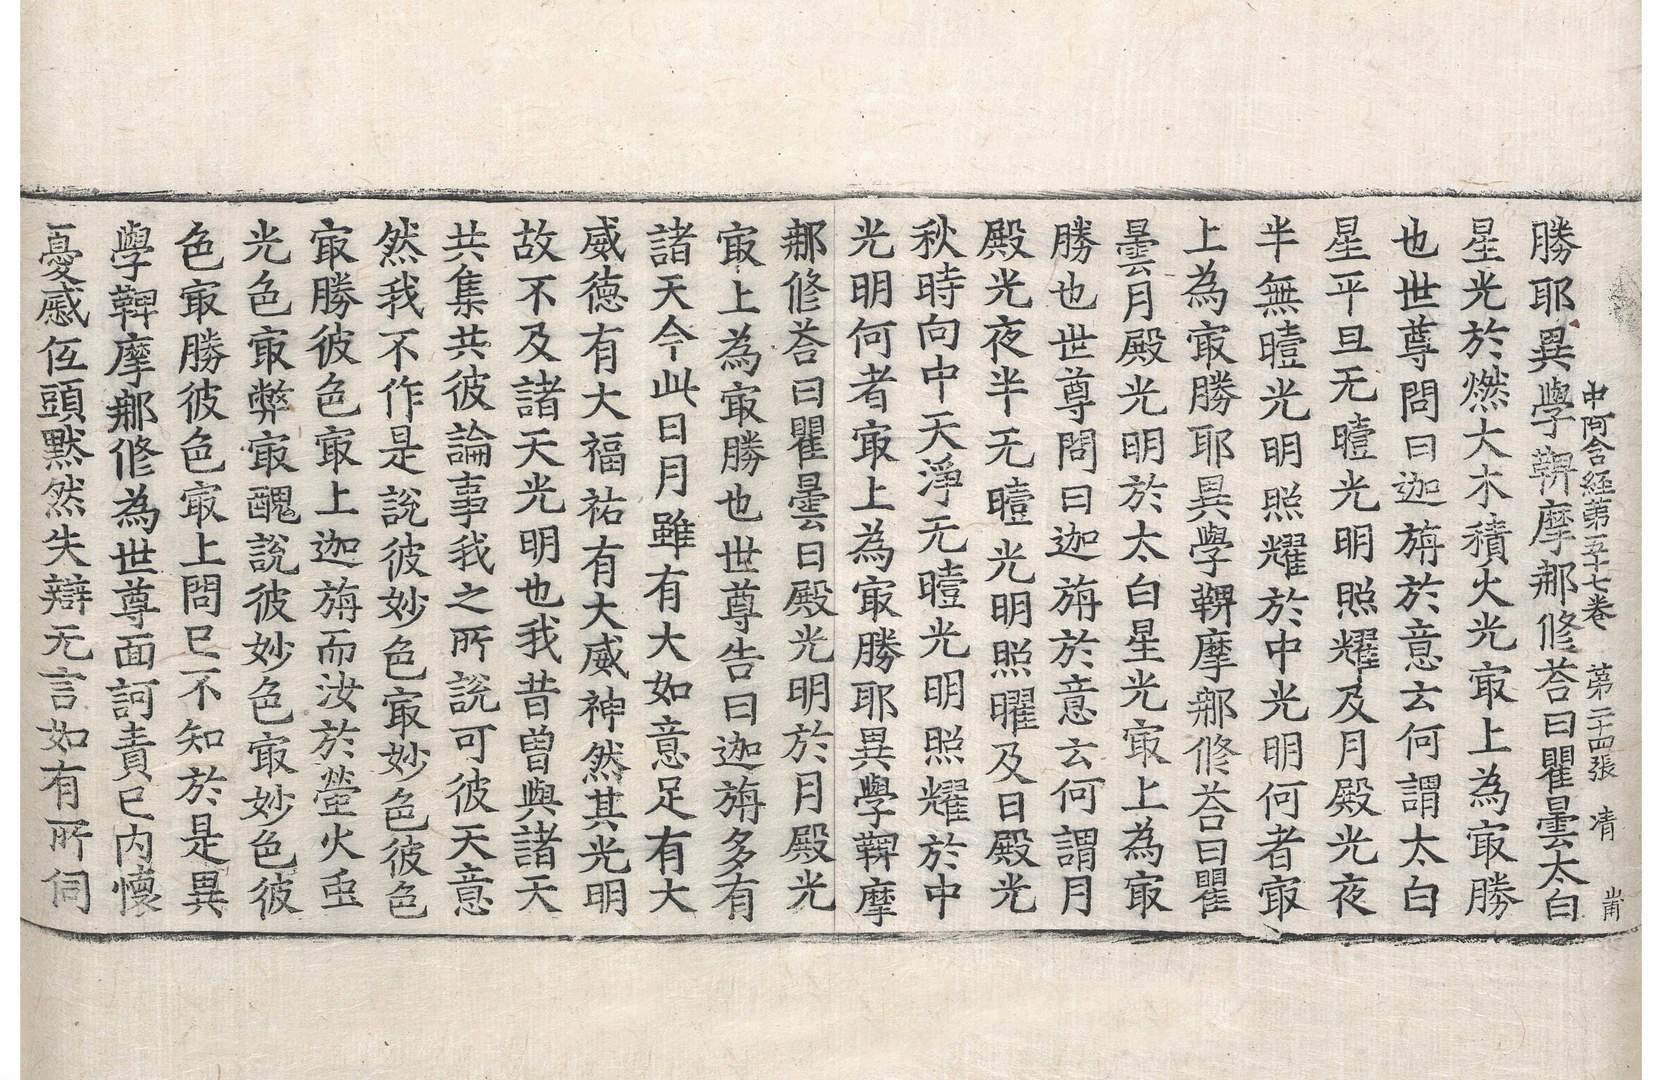 中阿含經第五十七卷 第二十四張 凊
勝耶異學鞞摩那修荅曰瞿曇太白
星光於燃大木積火光㝡上為㝡勝
也世尊問曰迦旃於意云何謂太白
星平旦无曀光明照耀及月殿光夜
半無曀光明照耀於中光明何者㝡
上為㝡勝耶異學鞞摩那修荅曰瞿
曇月殿光明於太白星光㝡上為㝡
勝也世尊問曰迦旃於意云何謂月
殿光夜半无曀光明照曜及日殿光
秋時向中天淨无曀光明照耀於中
光明何者㝡上為㝡勝耶異學鞞摩
那修荅曰瞿曇日殿光明於月殿光
㝡上為㝡勝也世尊告曰迦旃多有
諸天今此日月雖有大如意足有大
威德有大福祐有大威神然其光明
故不及諸天光明也我昔曾與諸天
共集共彼論事我之所說可彼天意
然我不作是說彼妙色㝡妙色彼色
㝡勝彼色㝡上迦旃而汝於螢火䖝
光色㝡弊㝡醜說彼妙色㝡妙色彼
色㝡勝彼色㝡上問已不知於是異
學鞞摩那修為世尊面訶責已內懷
憂慼伍頭默然失辯无言如有所伺